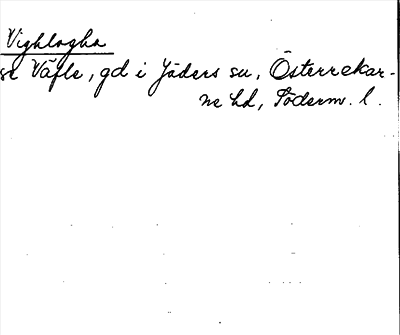 Vighlagha
se Väfle, gd i Jäders sn, Österrekar-
ne hd, Söderm. l.